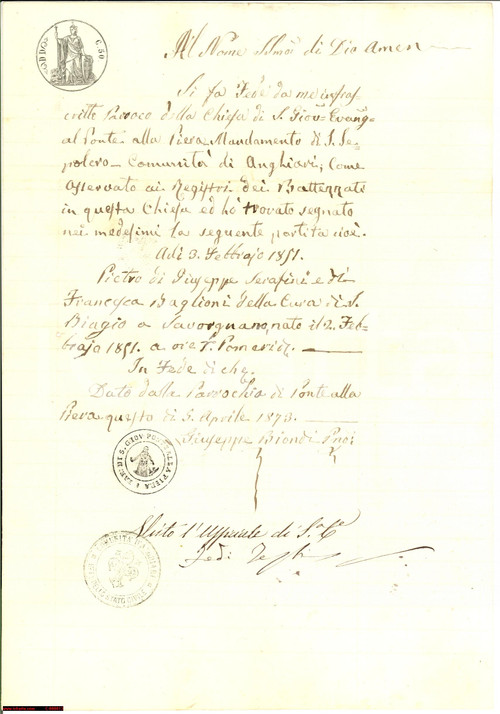 Al Nome SSmo di Dio Amen
Si fa Fede da me infra=
scritto Parroco della Chiesa di S. Giov: Evang:
al Ponte alla Piera Mandamento di S. Se=
polcro Comunità di Anghiari, come
osservato ai Registri dei Battezzati
in questa Chiesa ed hò trovato segnato
nei medesimi la seguente partita cioè.
Adì 3. Febbrajo 1851.
Pietro di Giuseppe Serafini e di
Francesca Baglioni della Cura di S.
Biagio a Savorgnano, nato il 2. Feb=
brajo 1851. a ore Pomerid.
In Fede di che.
Dato dalla Parrochia di Ponte alla
Piera questo dì 5. Aprile 1873.
Giuseppe Biondi
Visto l'Uffiziale di
C. 50